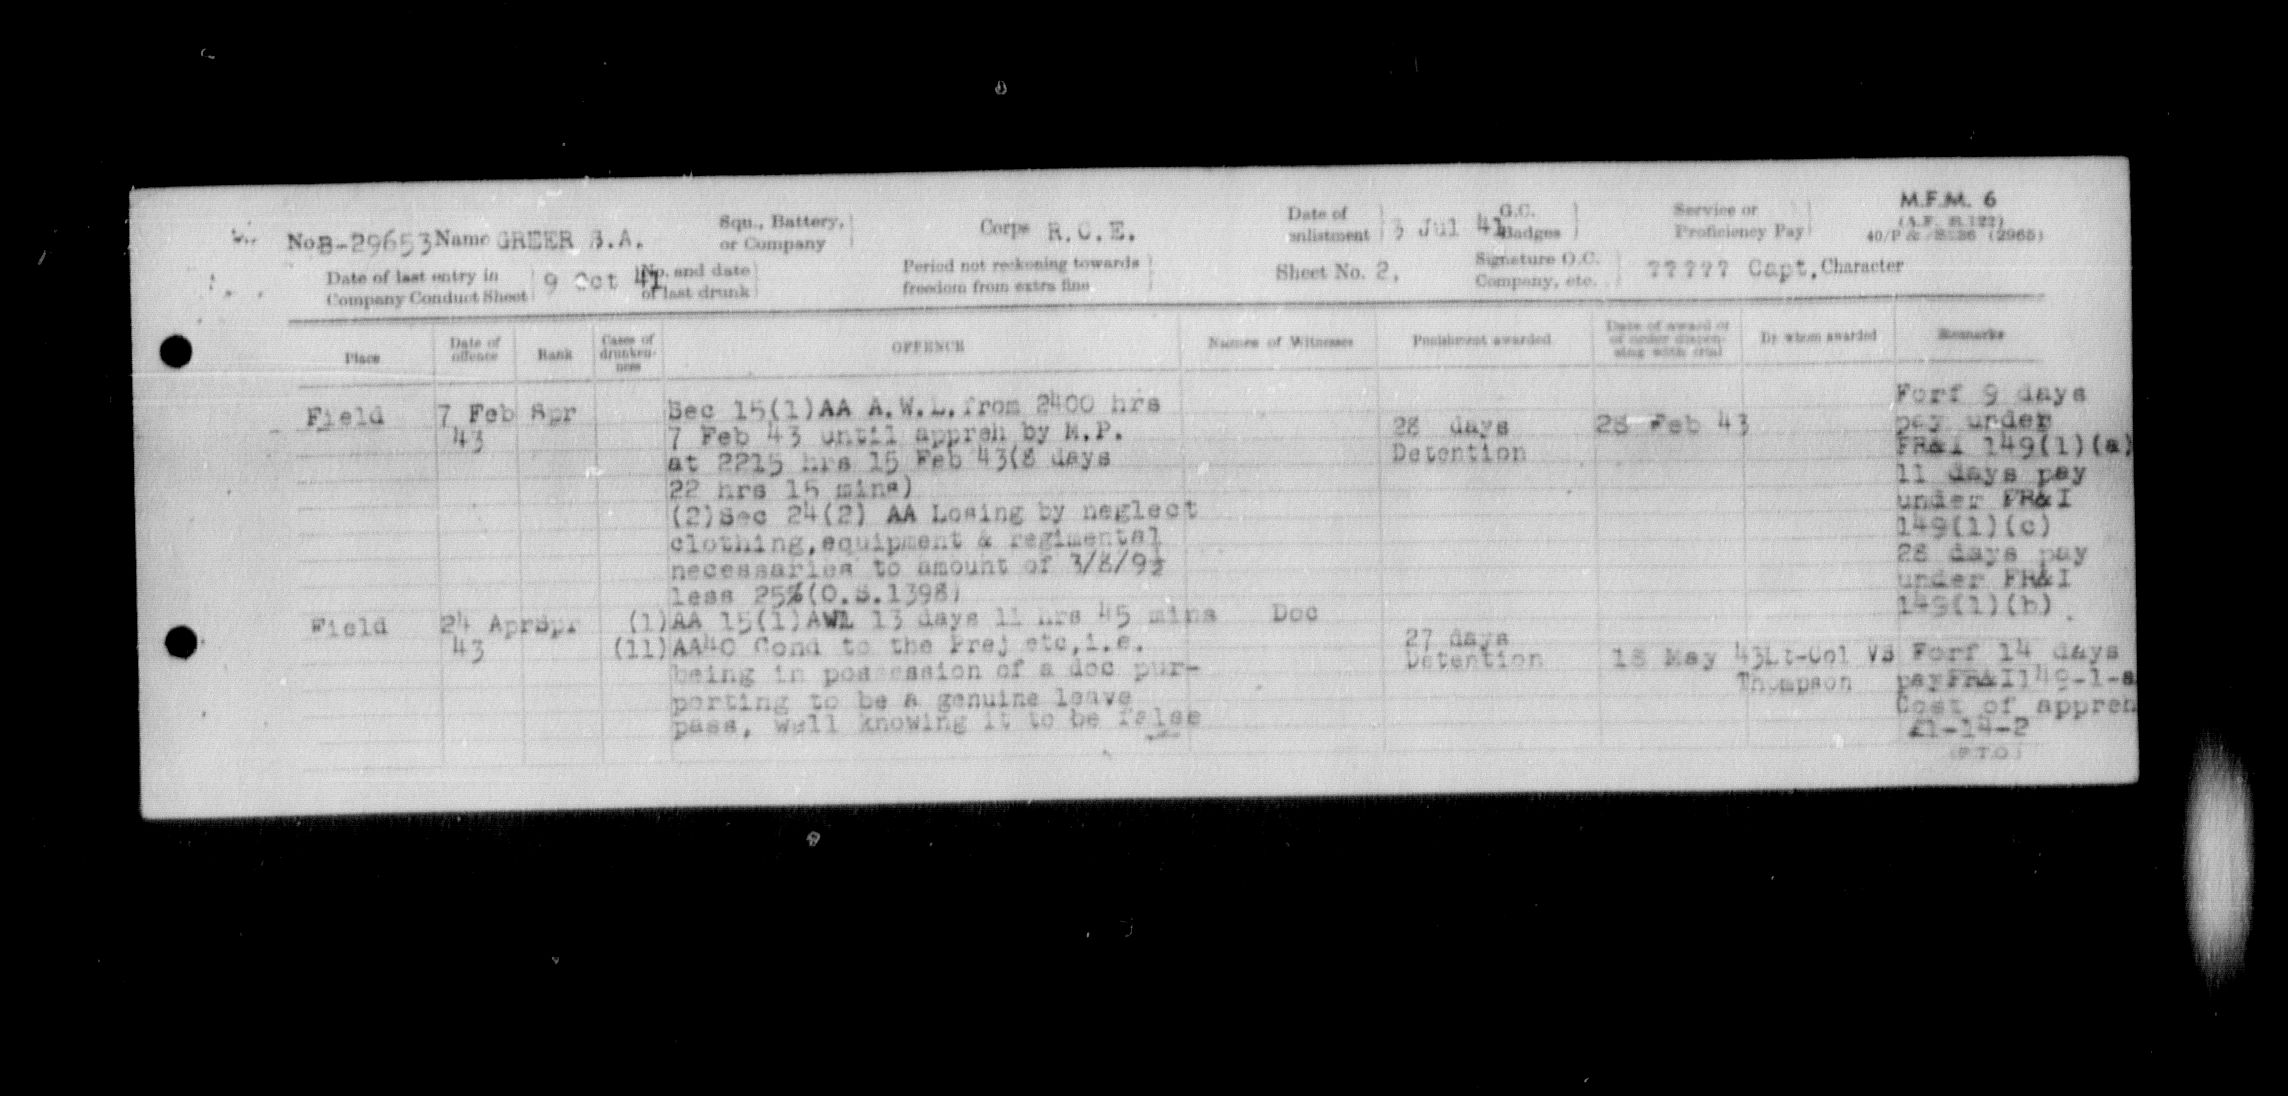 M.F.M. 6
(A.F. B.122)
40/P & /8236 (2965)
No. B-29653 Name GREER S.A. Squ., Battery, or Company Corps R.C.E. Date of enlistment 3 Jul 41 G.C. Badges Service or Proficiency Pay
Date of last entry in Company Conduct Sheet 9 Oct 41 No. and date of last drunk Period not reckoning towards freedom from extra fine Sheet No. 2, Signature O.C. Company, etc. ????? Capt, Character
Place Date of offence Rank Cases of drunkenness OFFENCE Names of Witnesses Punishment awarded Date of award or of order dispensing with trial By whom awarded Remarks
Field 7 Feb 43 Spr
Sec 15(1)AA A.W.L. from 2400 hrs
7 Feb 43 until appreh by M.P.
at 2215 hrs 15 Feb 43(8 days
22 hrs 15 mins)
(2)Sec 24(2) AA Losing by neglect
clothing,equipment & regimental
necessaries to amount of 3/8/9½
less 25%(O.S.1398)
28 days
Detention
28 Feb 43
Forf 9 days
pay under
FR&I 149(1)(a)
11 days pay
under FR&I
149(1)(c)
28 days pay
under FR&I
149(1)(b)
Field 24 Apr 43 Spr
(1)AA 15(1)AWL 13 days 11 hrs 45 mins
(11)AA40 Cond to the Prej etc,i.e.
being in possession of a doc pur-
porting to be a genuine leave
pass, well knowing it to be false
Doc
27 days
Detention
18 May 43
Lt-Col VS
Thompson
Forf 14 days
payFR&I149-1-a
Cost of appreh
£1-14-2
(P.T.O)